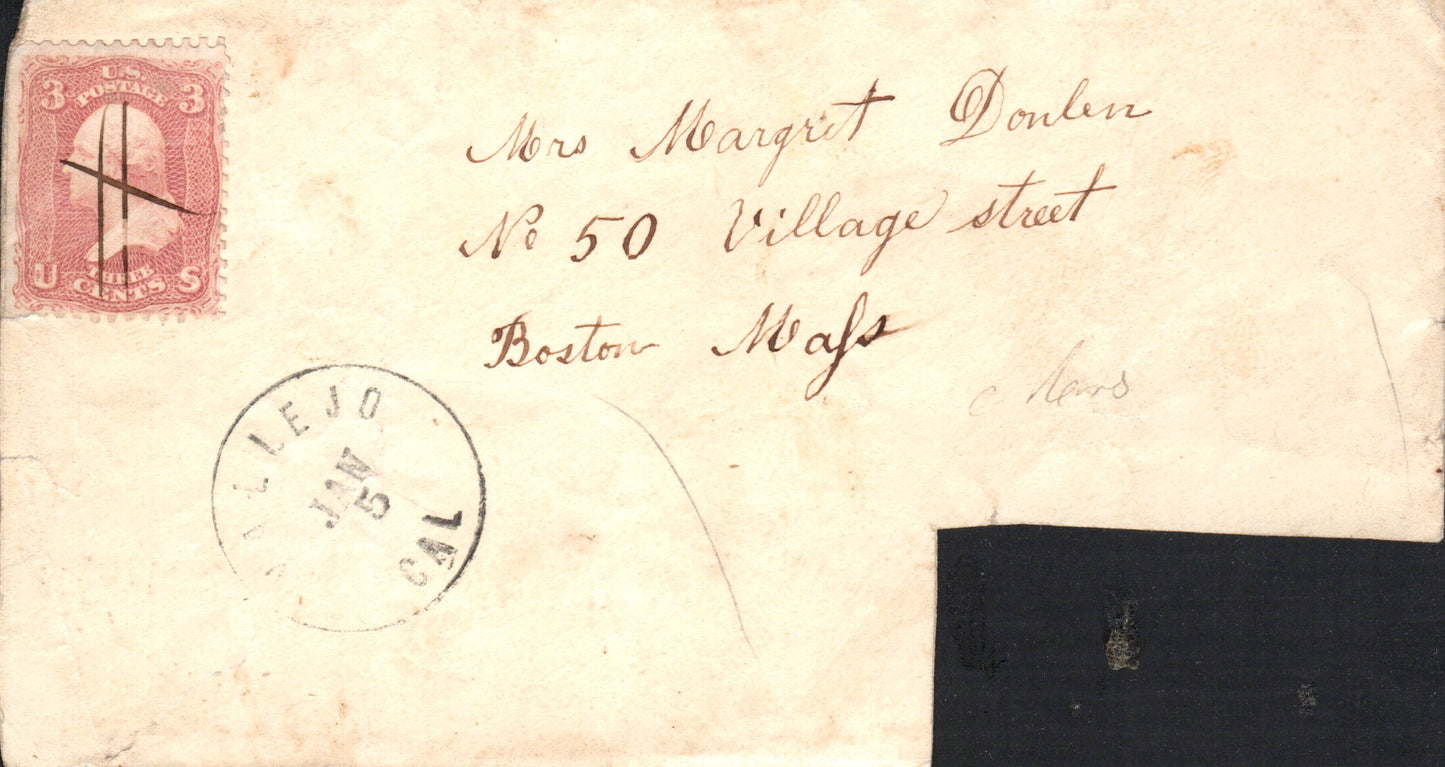 U.S.
POSTAGE
3 3
THREE
CENTS
U S
Mrs Margret Donlen
No 50 Village street
Boston Maſs
VALLEJO
JAN
5
CAL